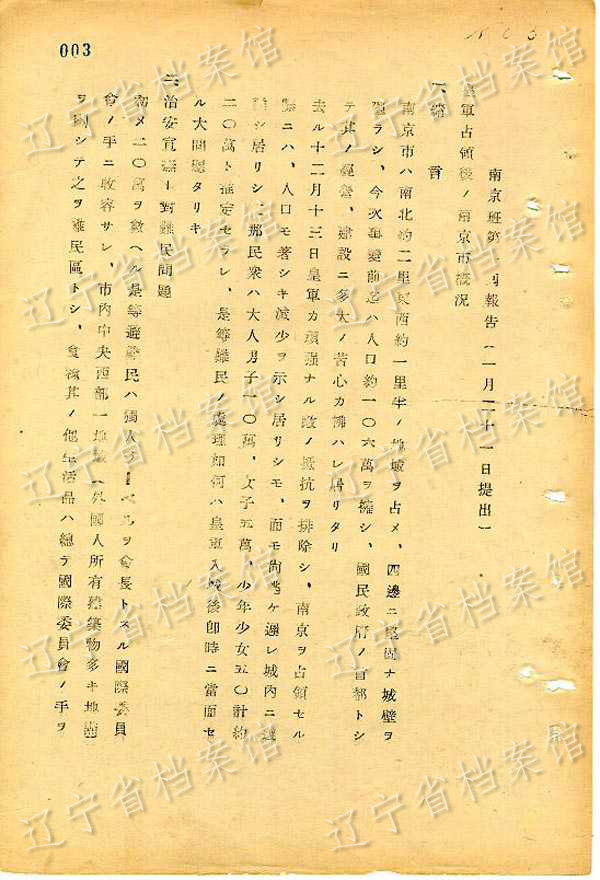 003
南京班第 囘報告（一月二十一日提出）
皇軍占領後ノ南京市概況
一、緒言
南京市ハ南北約二里東西約一里半ノ地域ヲ占メ、四邊ニ堅固ナ城壁ヲ
ラシ、今次事變前迄ハ人口約一〇六萬ヲ擁シ、國民政府ノ首都トシ
テ其ノ經營、建設ニ多大ノ苦心カ拂ハレ居リタリ
去ル十二月十三日皇軍カ頑强ナル敵ノ抵抗ヲ排除シ、南京ヲ占領セル
ニハ、人口モ著シキ減少ヲ示シ居リシモ、而モ尚 ケ遲レ城內ニ
シ居リシ 那民衆ハ大人男子一〇萬、女子五萬、少年少女五〇計約
二〇萬ト推定セラレ、是等難民ノ處理如何ハ皇軍入城後卽時ニ當面セ
ル大問題タリキ
二、治安宣 對難民問題
メ二〇萬ヲ數ヘル是等避難民ハ獨人ラーベルヲ會長トスル國際委員
會ノ手ニ收容サレ、市內中央西部一地域（外國人所有建築物多キ地面）
ヲ劃シテ之ヲ難民區トシ、食糧其ノ他生活品ハ總テ國際委員會ノ手ヲ
辽宁省档案馆
辽宁省档案馆
辽宁省档案馆
辽宁省档案馆
辽宁省档案馆
辽宁省档案馆
辽宁省档案馆
辽宁省档案馆